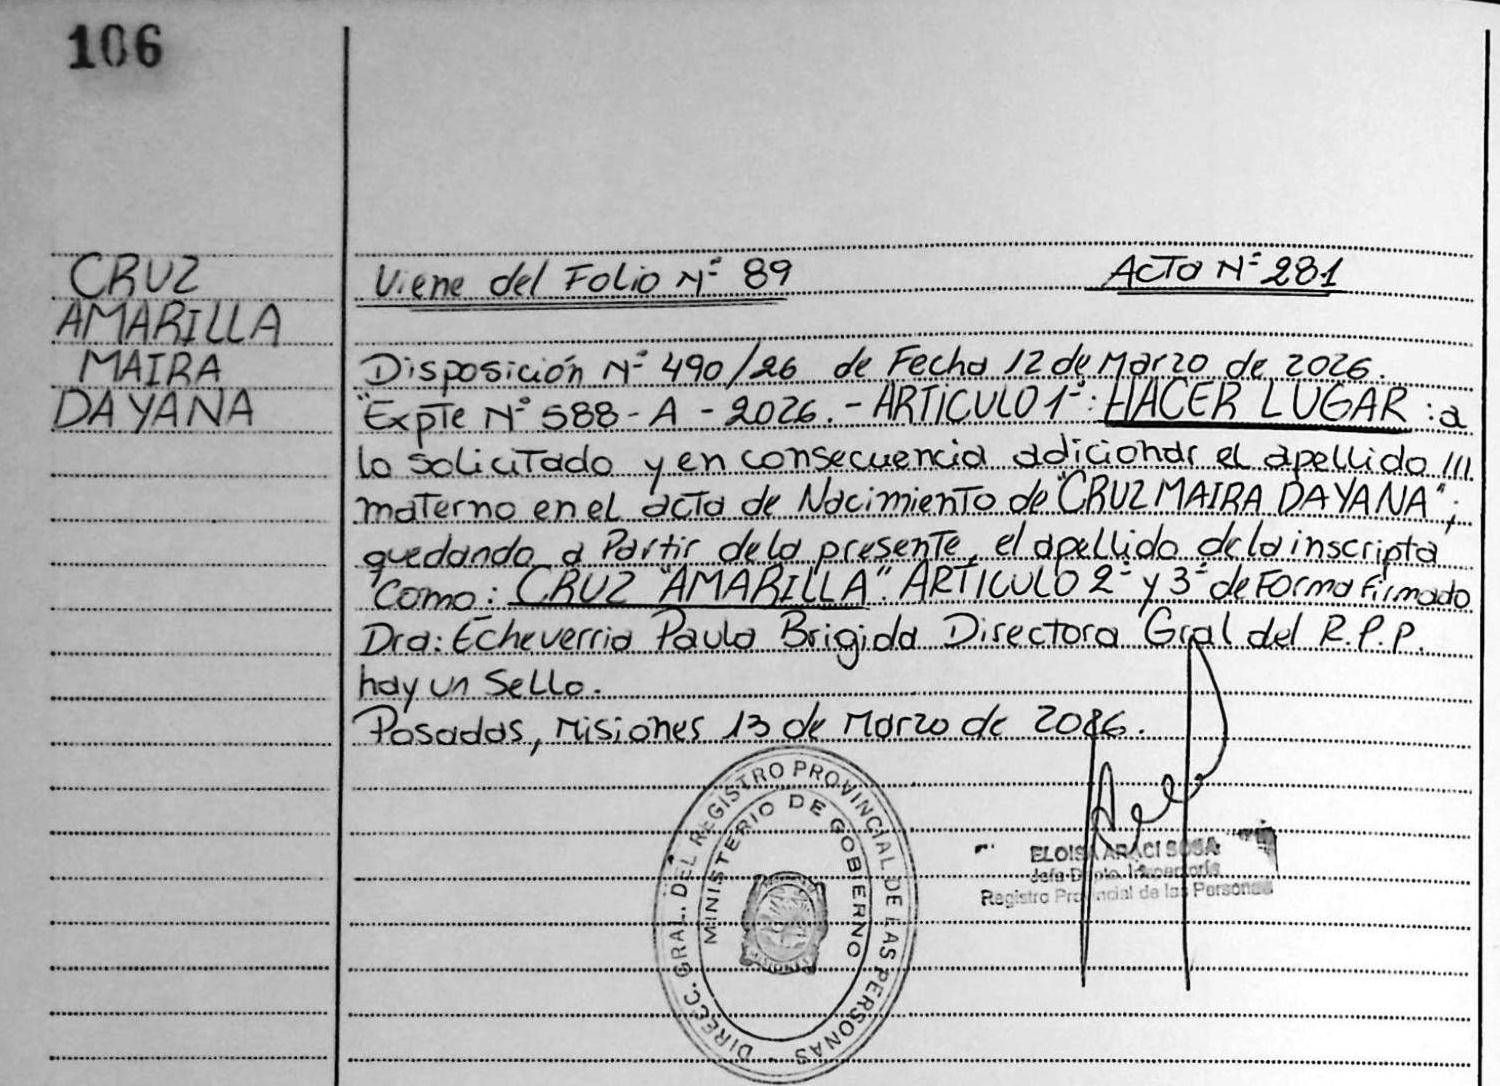 106
CRUZ
AMARILLA
MAIRA
DAYANA
Viene del Folio Nº 89
Acta Nº 281
Disposición Nº 490/26 de Fecha 12 de Marzo de 2026.
"Expte Nº 588-A-2026.- ARTICULO 1º: HACER LUGAR: a
lo solicitado y en consecuencia adicionar el apellido ///
materno en el acta de Nacimiento de "CRUZ MAIRA DAYANA";
quedando a Partir de la presente, el apellido de la inscripta
Como: CRUZ "AMARILLA". ARTICULO 2º y 3º de Forma firmado
Dra: Echeverria Paula Brigida Directora Gral del R.P.P.
hay un Sello.
Posadas, Misiones 13 de Marzo de 2026.
DIRECC. GRAL. DEL REGISTRO PROVINCIAL DE LAS PERSONAS -
MINISTERIO DE GOBIERNO
ELOISA ARACI SOSA
Jefa Dpto.
Registro Provincial de las Personas